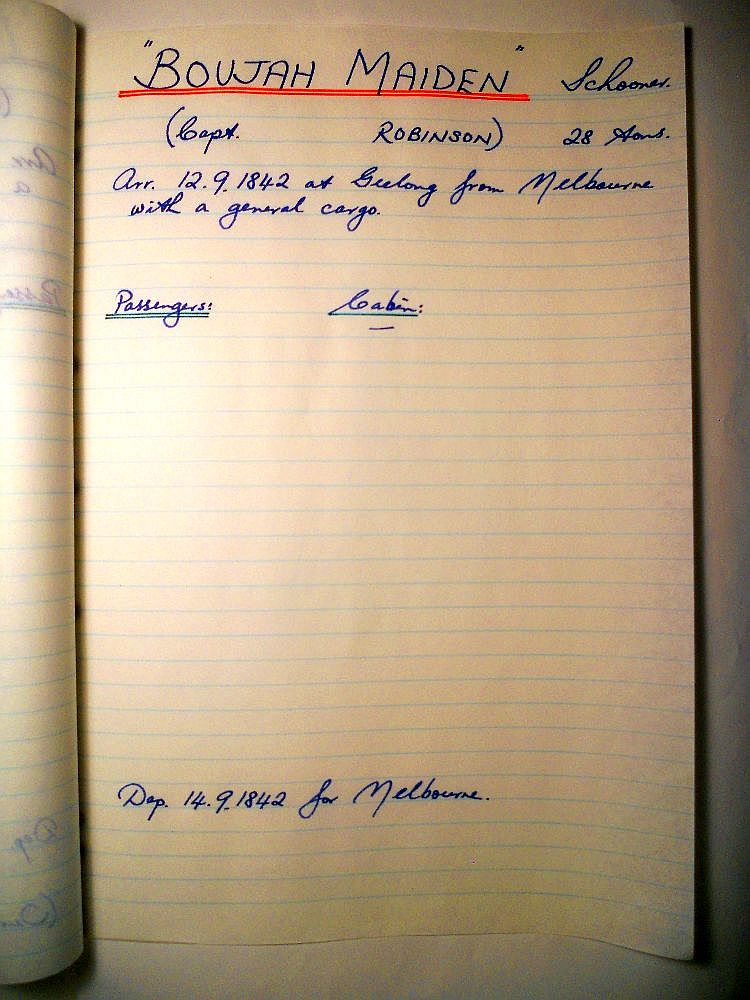 "BOUJAH MAIDEN" Schooner.
(Capt. ROBINSON) 28 tons.
Arr. 12.9.1842 at Geelong from Melbourne
with a general cargo.
Passengers: Cabin:
—
Dep. 14.9.1842 for Melbourne.